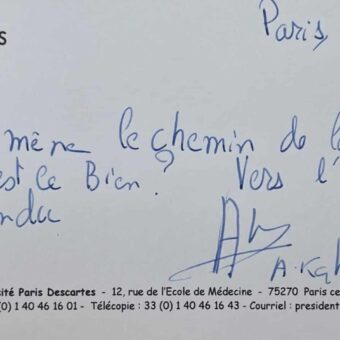 S
Paris,
mène le chemin de l
est ce Bien? Vers l'
A. K
sité Paris Descartes - 12, rue de l'Ecole de Médecine - 75270 Paris ce
(0) 1 40 46 16 01 - Télécopie : 33 (0) 1 40 46 16 43 - Courriel : president